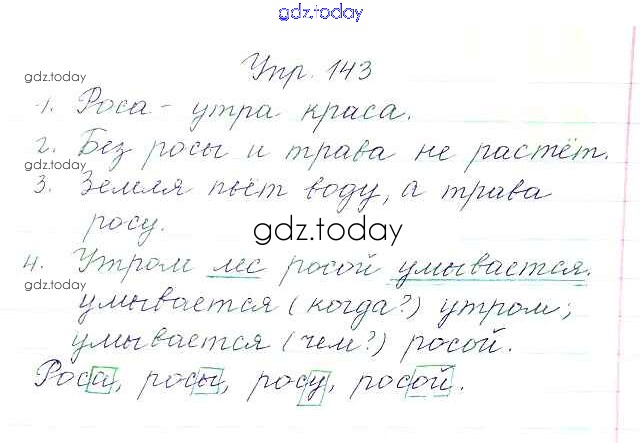 gdz.today
Упр. 143
gdz.today
1. Роса - утра краса.
2. Без росы и трава не растёт.
gdz.today
3. Земля пьёт воду, а трава
росу.
gdz.today
4. Утром лес росой умывается.
gdz.today
умывается (когда?) утром;
умывается (чем?) росой.
Роса, росы, росу, росой.